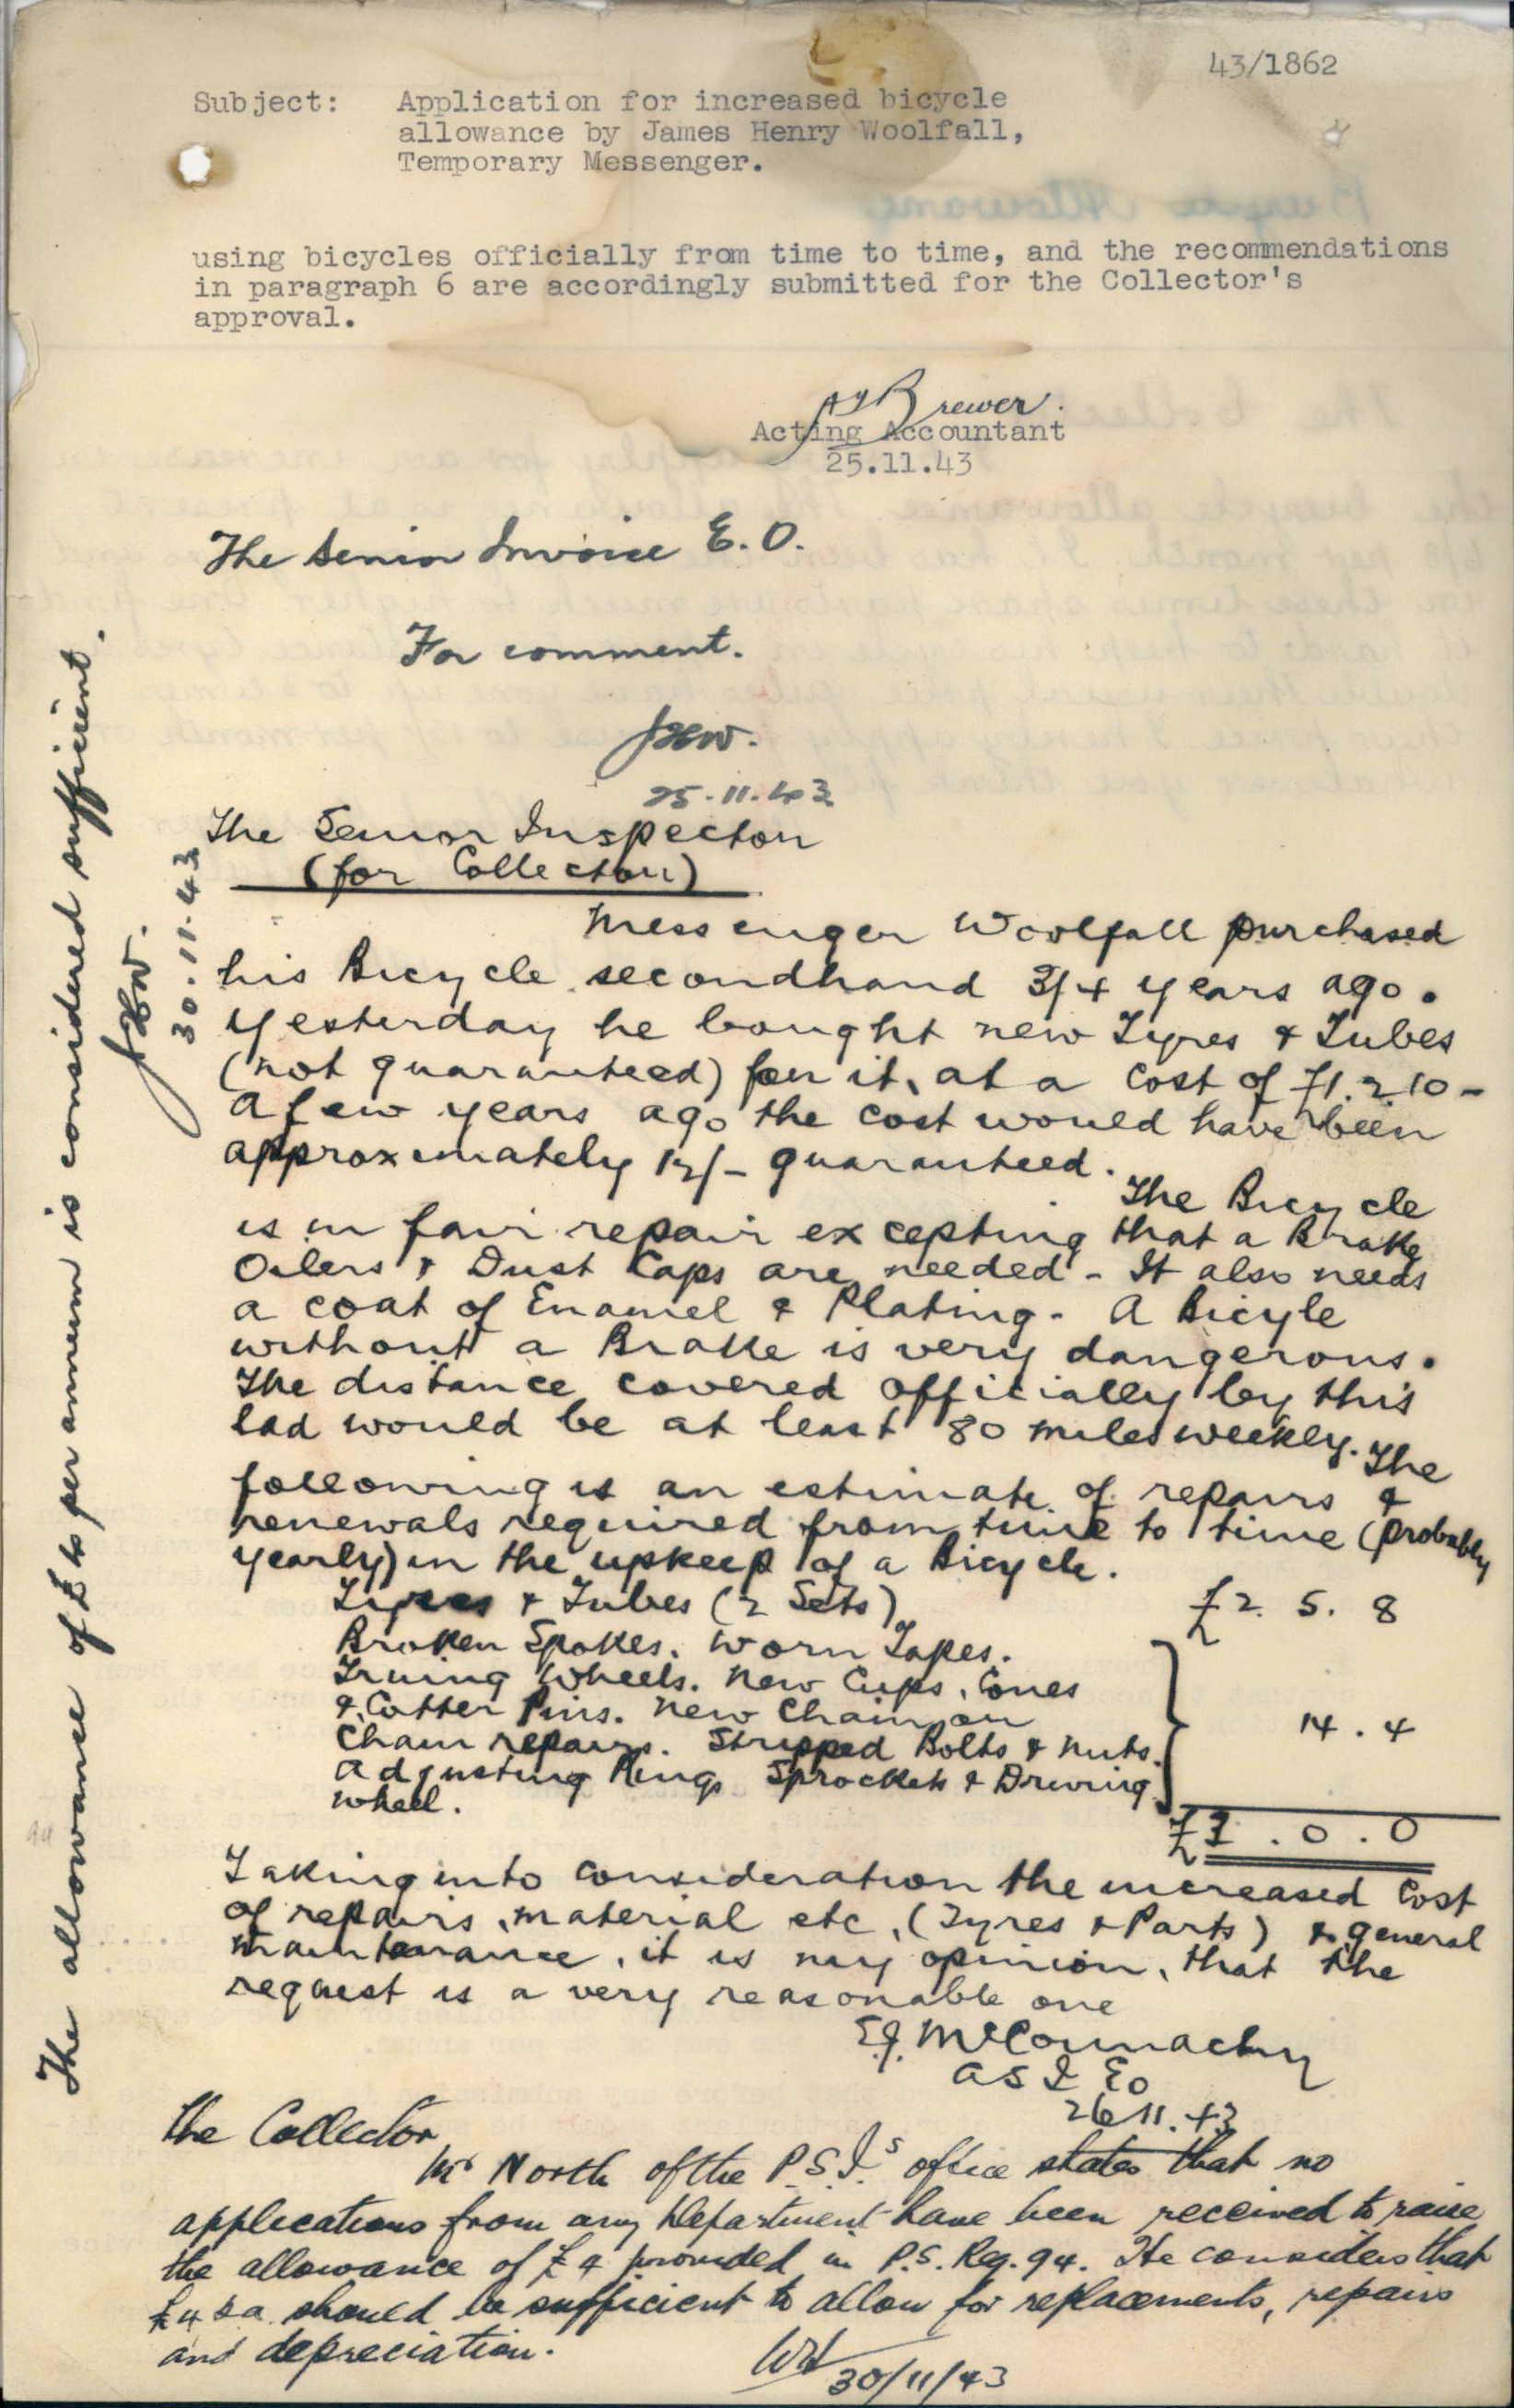 43/1862
Subject: Application for increased bicycle
allowance by James Henry Woolfall,
Temporary Messenger.
using bicycles officially from time to time, and the recommendations
in paragraph 6 are accordingly submitted for the Collector's
approval.
Brewer.
Acting Accountant
25.11.43
The Senior Invoice E.O.
For comment.
25.11.43
The Senior Inspector
(for Collector)
Messenger Woolfall purchased
his Bicycle secondhand 3/4 years ago.
Yesterday he bought new Tyres & Tubes
(not guaranteed) for it, at a cost of £1.2.10 -
A few years ago the cost would have been
approximately 12/- guaranteed.
The Bicycle
is in fair repair excepting that a Brake
Oilers & Dust Caps are needed - It also needs
a coat of Enamel & Plating - A Bicyle
without a Brake is very dangerous.
The distance covered officially by this
lad would be at least 80 miles weekly. The
following is an estimate of repairs &
renewals required from time to time (probably
yearly) in the upkeep of a Bicycle.
Tyres & Tubes (2 Sets) £2. 5. 8
Broken Spokes. Worn Tapes.
Truing Wheels. New Cups, Cones
& Cotter Pins. New Chain or
Chain repairs. Stripped Bolts & Nuts.
Adjusting Rings Sprockets & Driving
Wheel.
14.4
£3.0.0
Taking into consideration the increased cost
of repairs, material etc, (Tyres & Parts) & general
maintenance, it is my opinion, that the
request is a very reasonable one
E.J. McConnachy
A S I EO
26.11.43
The Collector
Mr North of the P.S.I.'s office states that no
applications from any Department have been received to raise
the allowance of £4 provided in P.S. Reg. 94. He considers that
£4 should be sufficient to allow for replacements, repairs
and depreciation.
30/11/43
The allowance of £ per annum is considered sufficient.
30.11.43